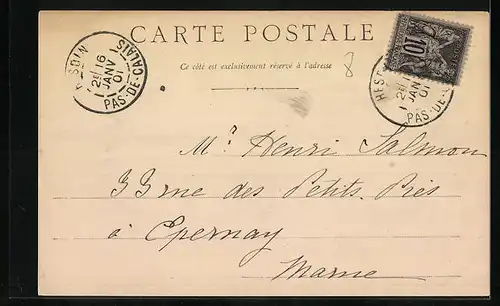 CARTE POSTALE
Ce côté est exclusivement réservé à l'adresse
HESDIN
2E / 16
JANV
01
PAS-DE-CALAIS
8
10
HESD
2E / 1
JANV
01
PAS-DE-C
Mr Henri Salmon
33 rue des Petits Prés
à Epernay
Marne